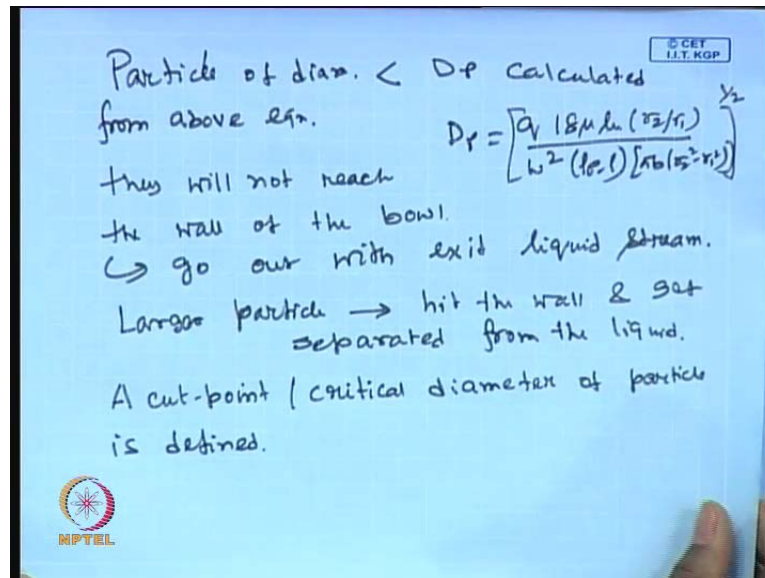 © CET
I.I.T. KGP
Particle of diam. < Dp calculated
from above eqn.
Dp = [q 18μ ln (r2/r1) / ω² (ρp-ρ) [πb(r2²-r1²)]]^1/2
they will not reach
the wall of the bowl.
↳ go out with exit liquid stream.
Larger particle → hit the wall & get
separated from the liquid.
A cut-point / critical diameter of particle
is defined.
NPTEL